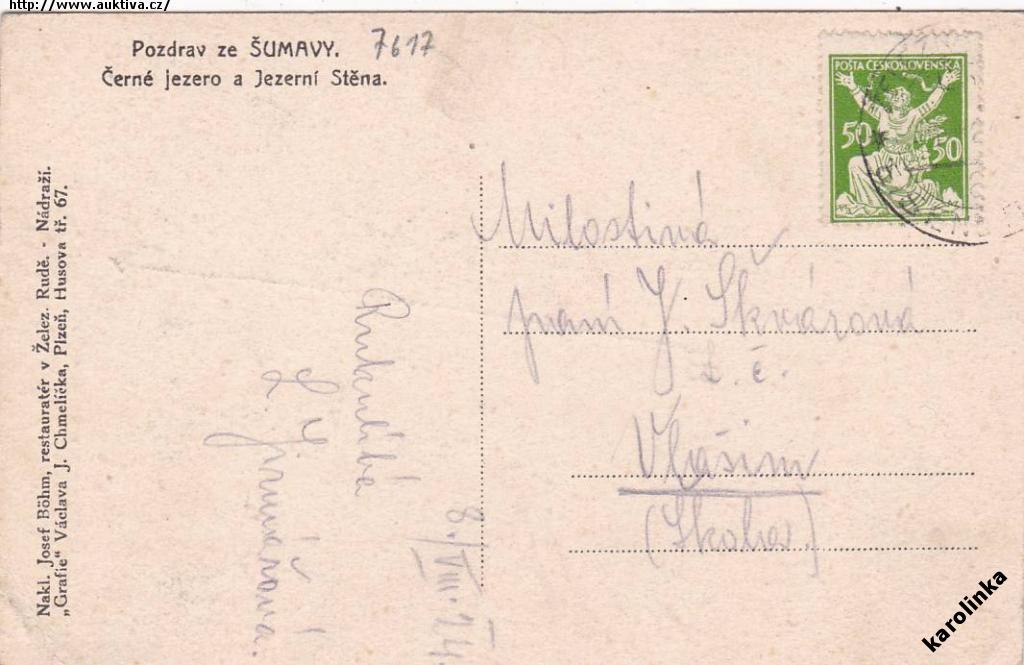 http://www.auktiva.cz/
Pozdrav ze ŠUMAVY.
Černé jezero a Jezerní Stěna.
7617
POŠTA ČESKOSLOVENSKA
50 50
Nakl. Josef Böhm, restauratér v Želez. Rudě. - Nádraží.
„Grafie“ Václava J. Chmelíčka, Plzeň, Husova tř. 67.
Milostivá
paní J. Škvárová
Vlašim
(Škola)
Rukulíbá
8./VIII. 24.
karolinka